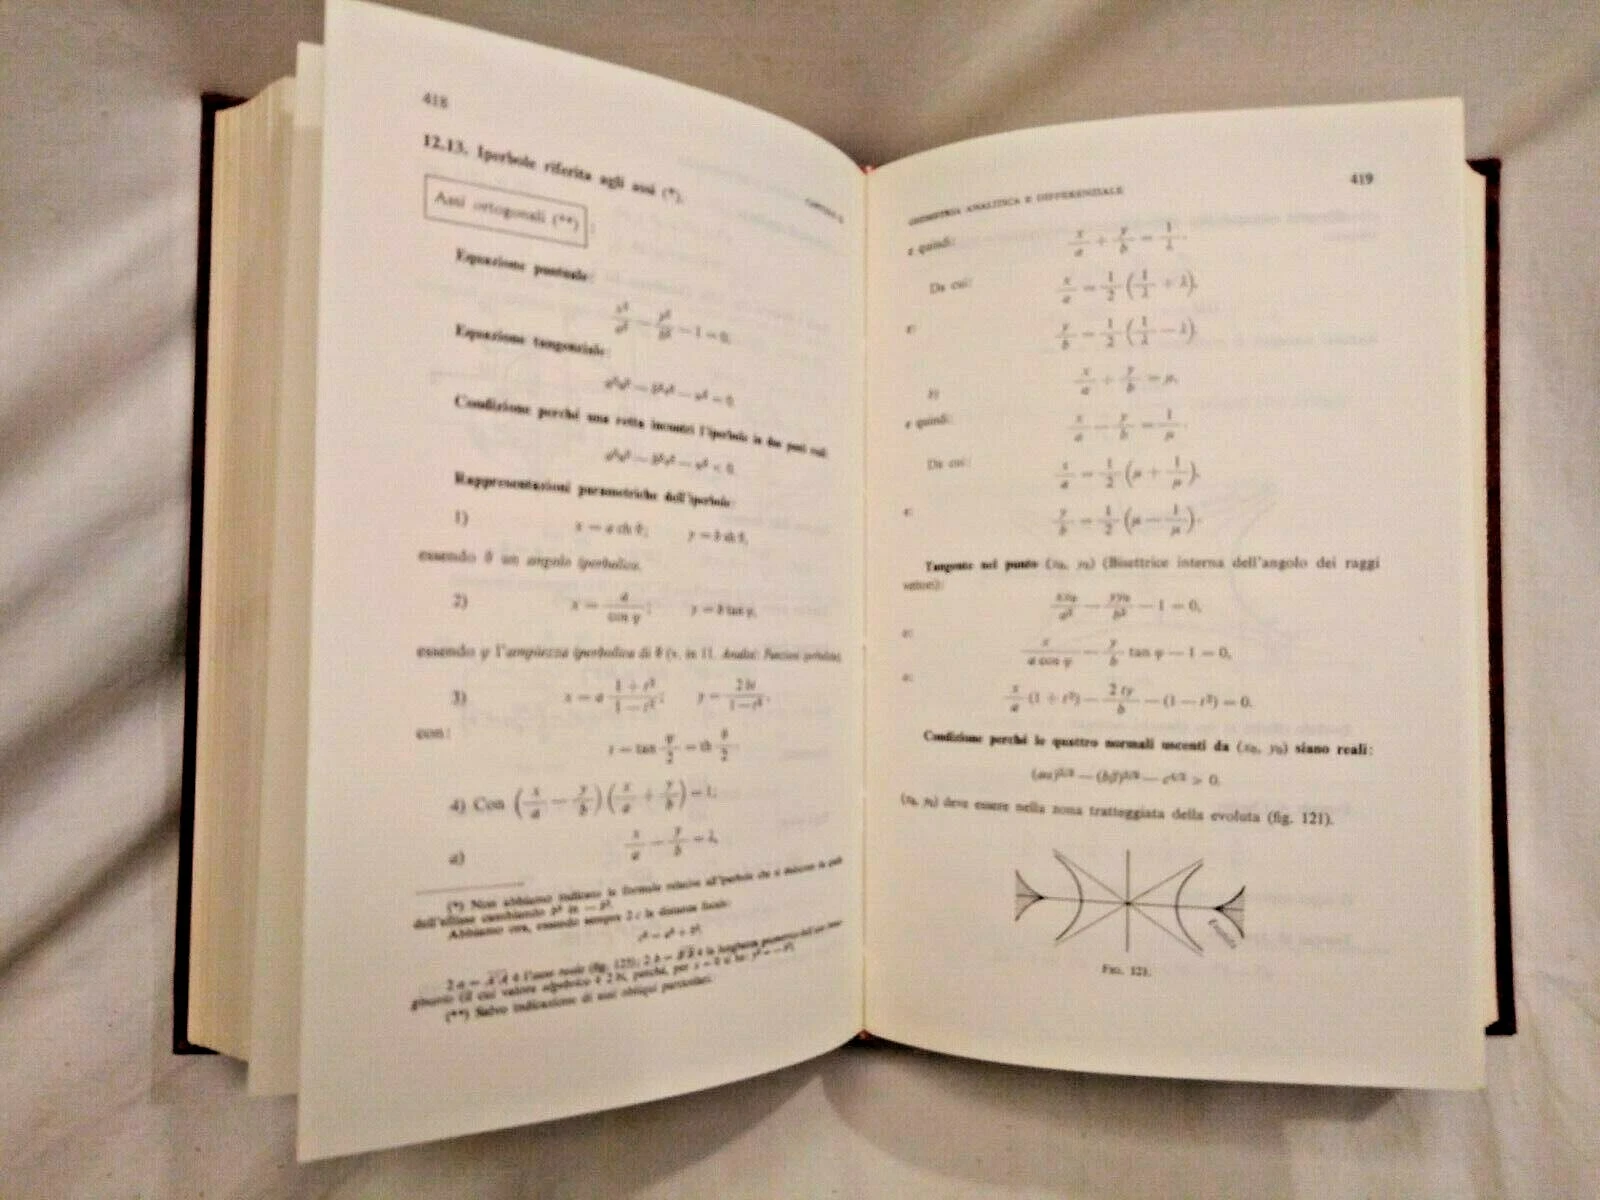 418
12.13. Iperbole riferita agli assi (*).
Assi ortogonali (**) :
Equazione puntuale:
x²/a² − y²/b² − 1 = 0.
Equazione tangenziale:
a²u² − b²v² − w² = 0.
Condizione perché una retta incontri l'iperbole in due punti reali:
a²u² − b²v² − w² < 0.
Rappresentazioni parametriche dell'iperbole:
1) x = a ch θ; y = b sh θ,
essendo θ un angolo iperbolico.
2) x = a/cos φ; y = b tan φ,
essendo φ l'ampiezza iperbolica di θ (v. in 11. Analisi: Funzioni iperboliche).
3) x = a (1 + t²)/(1 − t²); y = 2 bt/(1 − t²),
con:
t = tan φ/2 = th θ/2.
4) Con (x/a − y/b) (x/a + y/b) = 1;
a) x/a − y/b = λ,
(*) Non abbiamo indicato le formule relative all'iperbole che si deducono da quelle
dell'ellisse cambiando b² in − b².
Abbiamo ora, essendo sempre 2 c la distanza focale:
c² = a² + b².
2 a = A'A è l'asse reale (fig. 125); 2 b = B'B è la lunghezza
(il cui valore algebrico è 2 bi, perché, per x = 0 si ha: y² = − b²).
(**) Salvo indicazione di assi obliqui particolari.
GEOMETRIA ANALITICA E DIFFERENZIALE 419
e quindi: x/a + y/b = 1/λ.
Da cui: x/a = 1/2 (1/λ + λ),
e: y/b = 1/2 (1/λ − λ).
x/a + y/b = μ,
e quindi: x/a − y/b = 1/μ.
Da cui: x/a = 1/2 (μ + 1/μ),
e: y/b = 1/2 (μ − 1/μ).
Tangente nel punto (x₀, y₀) (Bisettrice interna dell'angolo dei raggi
vettori):
xx₀/a² − yy₀/b² − 1 = 0,
o:
x/(a cos φ) − y/b tan φ − 1 = 0,
o:
x/a (1 + t²) − 2 ty/b − (1 − t²) = 0.
Condizione perché le quattro normali uscenti da (x₀, y₀) siano reali:
(aα)²/³ − (bβ)²/³ − c⁴/³ > 0.
(x₀, y₀) deve essere nella zona tratteggiata della evoluta (fig. 121).
Evoluta
FIG. 121.